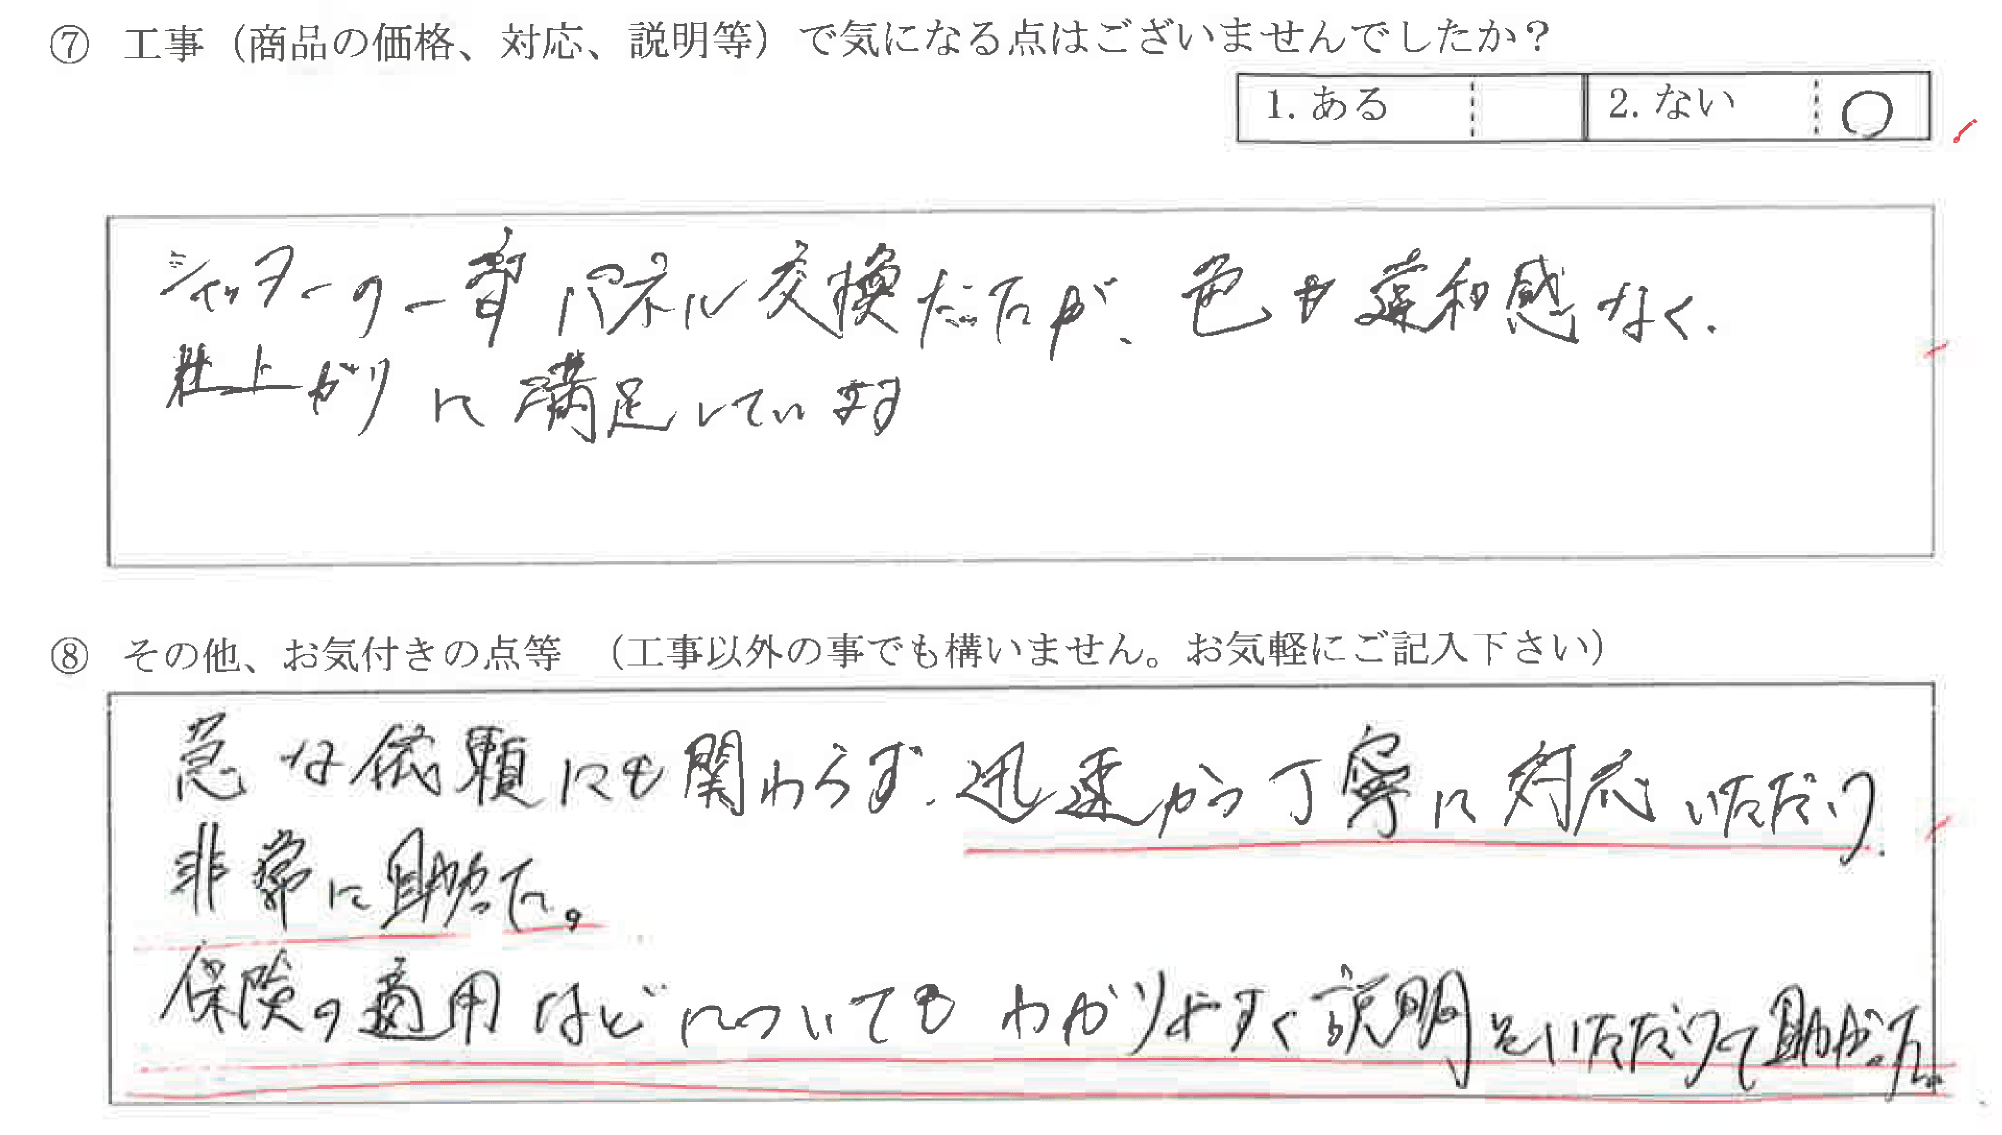 ⑦ 工事（商品の価格、対応、説明等）で気になる点はございませんでしたか？
1. ある 2. ない ○
シャッターの一部パネル交換だったが、色も違和感なく、
仕上がりに満足しています
⑧ その他、お気付きの点等 （工事以外の事でも構いません。お気軽にご記入下さい）
急な依頼にも関わらず、迅速かつ丁寧に対応いただけ、
非常に助かった。
保険の適用などについてもわかりやすく説明をいただけて助かった。